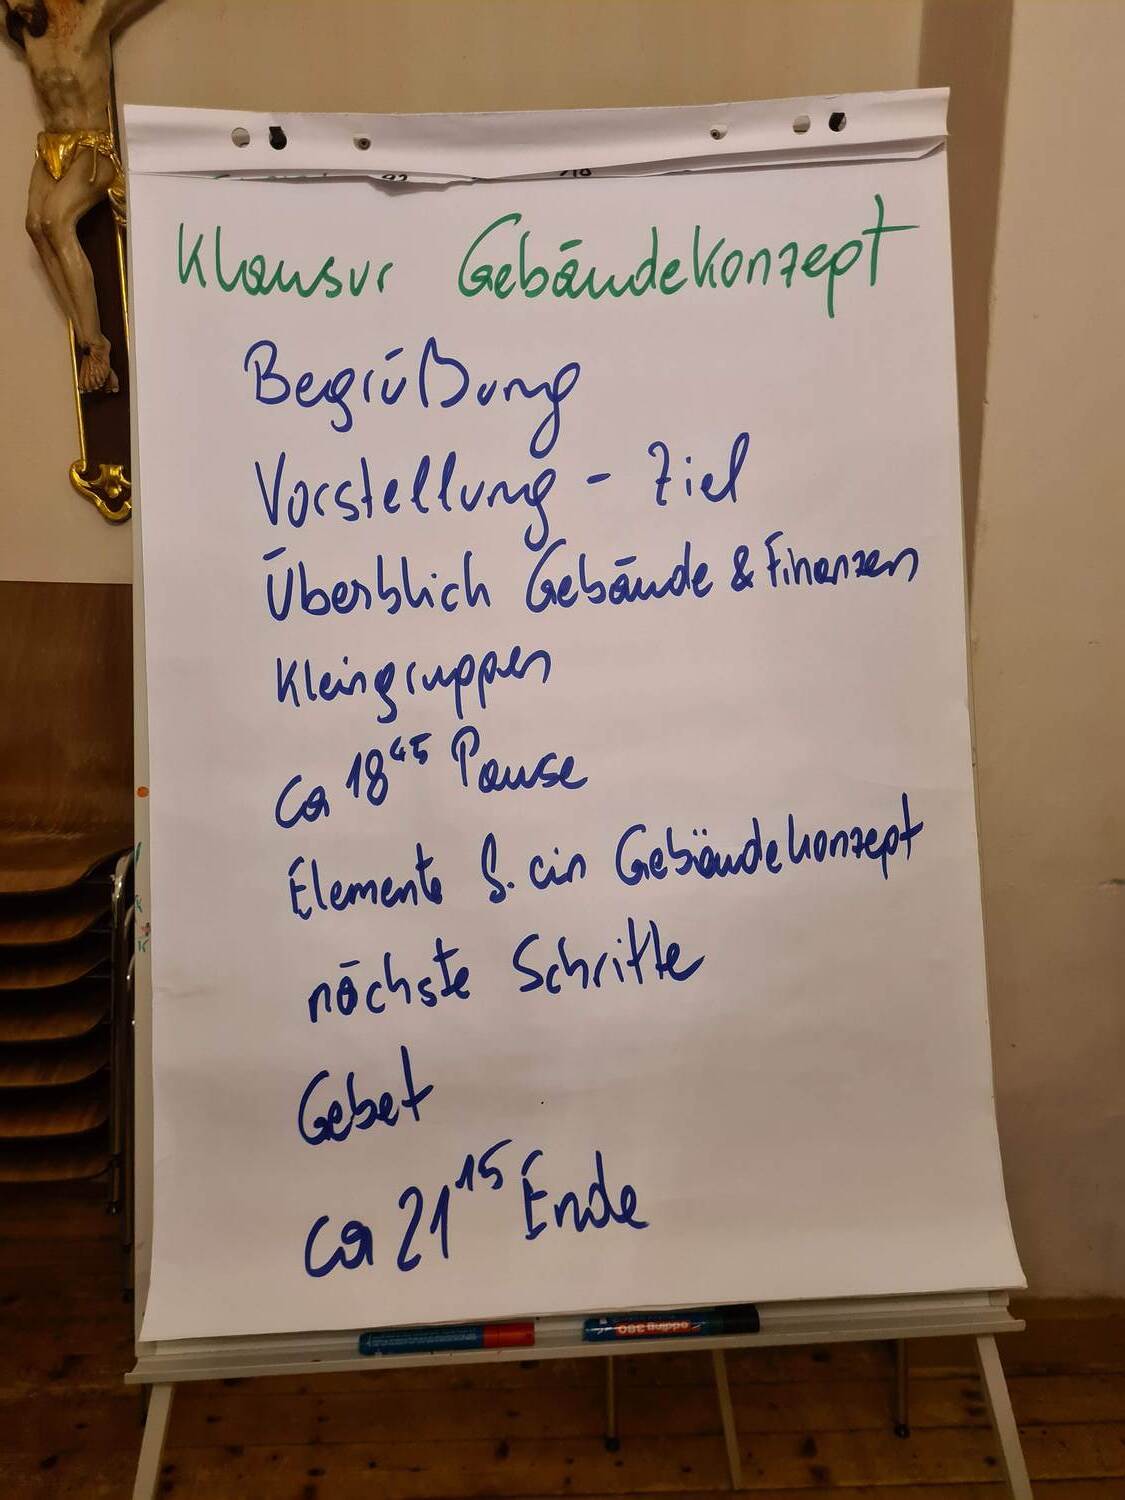 Klausur Gebäudekonzept
Begrüßung
Vorstellung - Ziel
Überblick Gebäude & Finanzen
Kleingruppen
ca 18⁴⁵ Pause
Elemente f. ein Gebäudekonzept
nächste Schritte
Gebet
ca 21¹⁵ Ende
edding 380